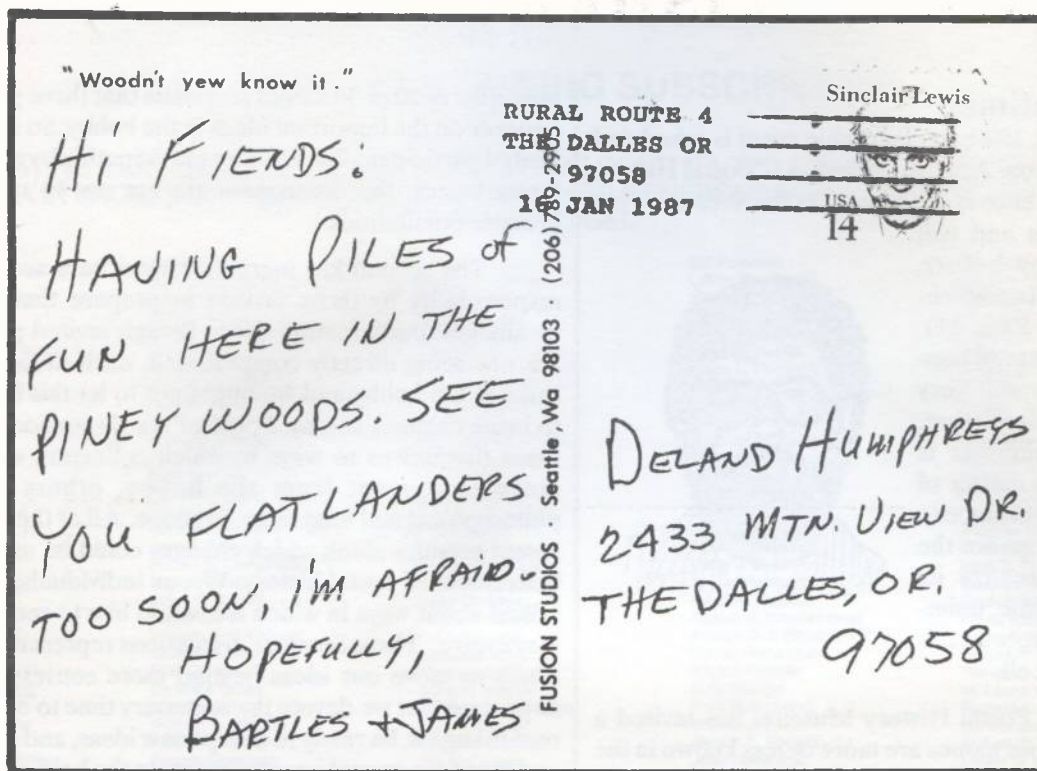 "Woodn't yew know it."
HI FIENDS:
HAVING PILES of
FUN HERE IN THE
PINEY WOODS. SEE
YOU FLATLANDERS
TOO SOON I'M AFRAID-
HOPEFULLY,
BARTLES + JAMES
FUSION STUDIOS Seattle Wa 98103 (206)789-2905
RURAL ROUTE 4
THE DALLES OR
97058
16 JAN 1987
Sinclair Lewis
USA
14
DELAND HUMPHREYS
2433 MTN. VIEW DR.
THE DALLES, OR.
97058